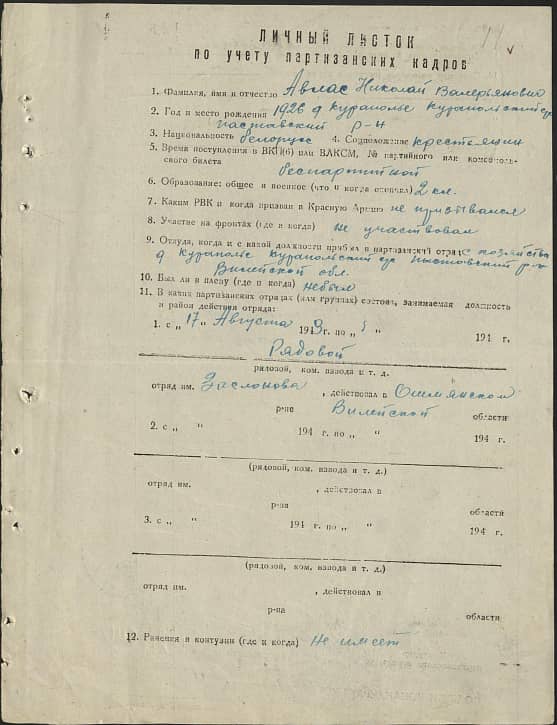 ЛИЧНЫЙ ЛИСТОК
по учету партизанских кадров
1. Фамилия, имя и отчество Авлас Николай Валерьянович
2. Год и место рождения 1926 д Курополье Куропольский с/с
р-н
3. Национальность белорус 4. Соцположение крестьянин
5. Время поступления в ВКП(б) или ВЛКСМ, № партийного или комсомоль-
ского билета
беспартийной
6. Образование: общее и военное (что и когда окончил) 2 кл.
7. Каким РВК и когда призван в Красную Армию не призывался
8. Участие на фронтах (где и когда) не участвовал
9. Откуда, когда и с какой должности прибыл в партизанский отряд с хозяйства
д Курополье Куропольский с/с р-н
Вилейской обл.
10. Был ли в плену (где и когда) небыл
11. В каких партизанских отрядах (или группах) состоял, занимаемая должность
и район действия отряда:
1. с „ 17 " Августа 1943 г. по „ " 194 г.
Рядовой
рядовой, ком. взвода и т. д.
отряд им. Заслонова , действовал в Ошмянском
р-не Вилейской области
2. с „ " 194 г. по „ " 194 г.
(рядовой, ком. взвода и т. д.)
отряд им. , действовал в
р-на области
3. с „ " 194 г. по „ " 194 г.
(рядовой, ком. взвода и т. д.)
отряд им. , действовал в
р-на области
12. Ранения и контузии (где и когда) Не имеет